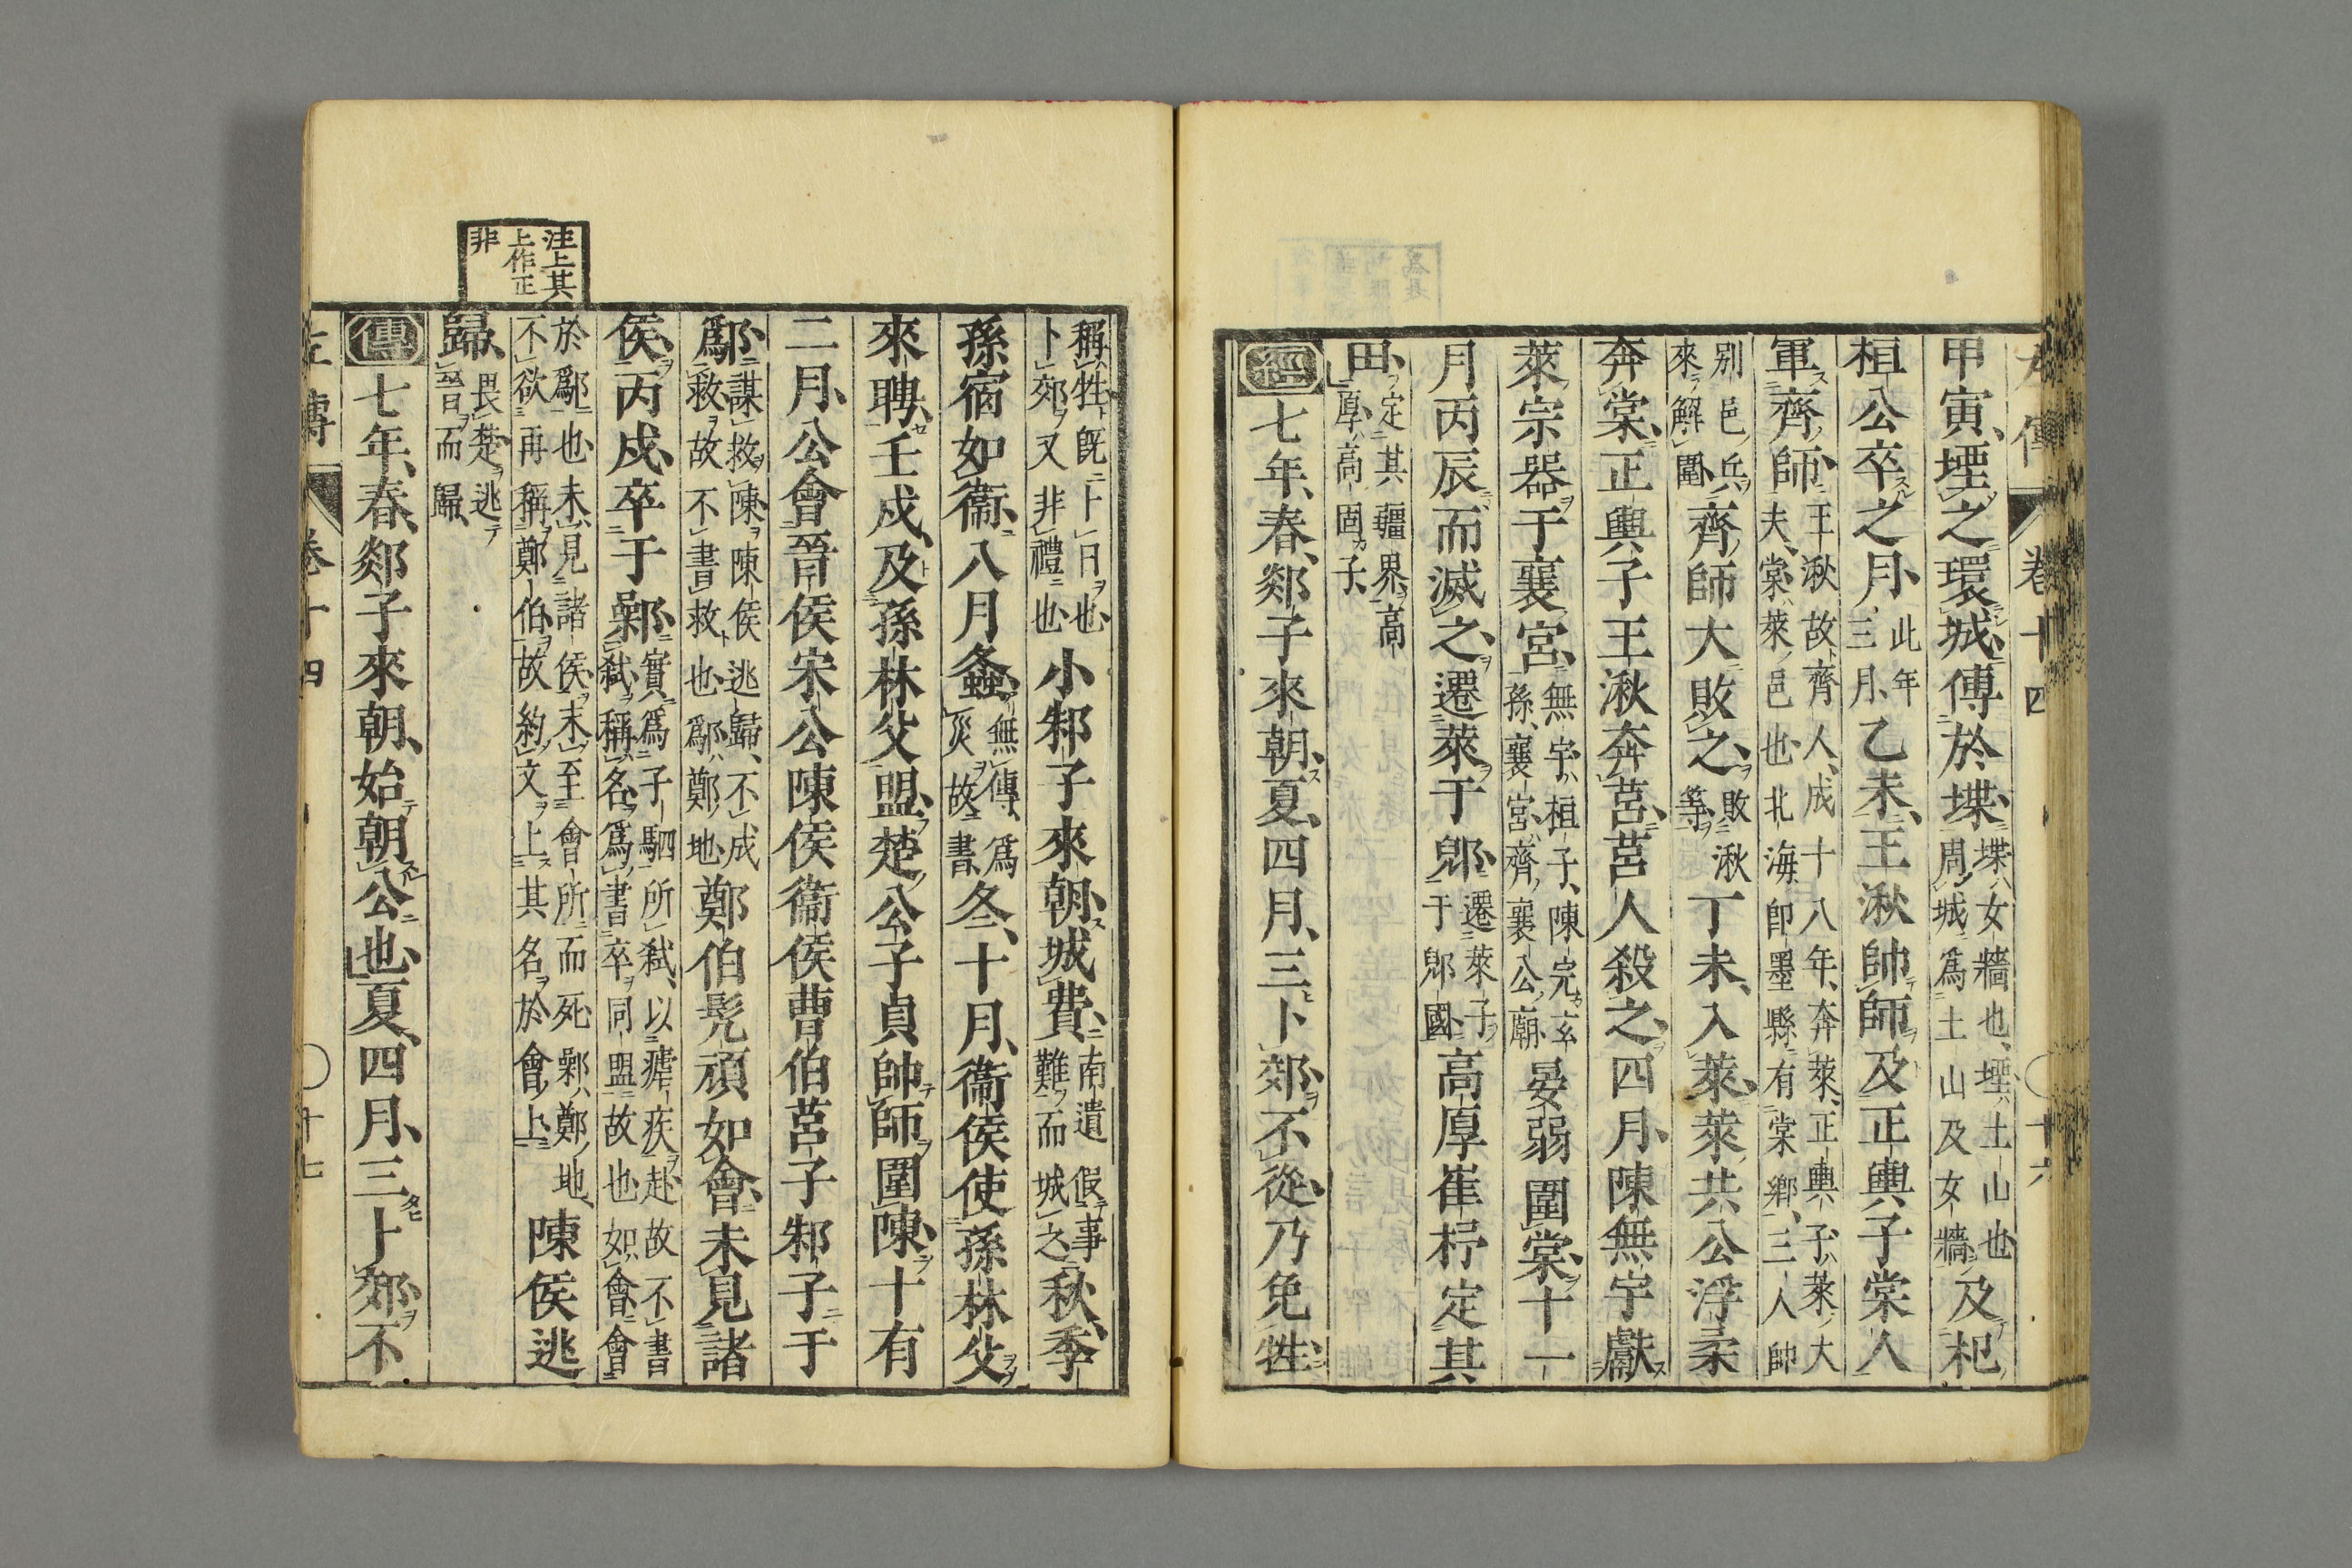 左傳 卷十四 十六
甲寅堙之環城傅於堞堞女牆也堙土山也周城爲土山及女牆及杞
桓公卒之月此年三月乙未王湫帥師及正輿子棠人
軍齊師王湫故齊人成十八年奔萊正輿子萊大夫棠萊邑也北海卽墨縣有棠鄉三人帥
別邑兵來解圍齊師大敗之敗湫等丁未入萊萊共公浮柔
奔棠正輿子王湫奔莒莒人殺之四月陳無宇獻
萊宗器于襄宮無宇桓子陳完玄孫襄宮齊襄公廟晏弱圍棠十一
月丙辰而滅之遷萊于郳遷萊子于郳國高厚崔杼定其
田定其疆界高厚高固子
經七年春郯子來朝夏四月三卜郊不從乃免牲
稱牲旣卜日也卜郊又非禮也小邾子來朝城費南遺假事難而城之秋季
孫宿如衞八月螽無傳爲災故書冬十月衞侯使孫林父
來聘壬戌及孫林父盟楚公子貞帥師圍陳十有
二月公會晉侯宋公陳侯衞侯曹伯莒子邾子于
鄬謀救陳陳侯逃歸不成救故不書救也鄬鄭地鄭伯髠頑如會未見諸
侯丙戌卒于鄵實爲子駟所弑以瘧疾赴故不書弑稱名爲書卒同盟故也如會會
於鄬也未見諸侯未至會所而死鄵鄭地不欲再稱鄭伯故約文上其名於會上陳侯逃
歸畏楚逃晉而歸
傳七年春郯子來朝始朝公也夏四月三卜郊不
注上其上作正非
左傳 卷十四 十七